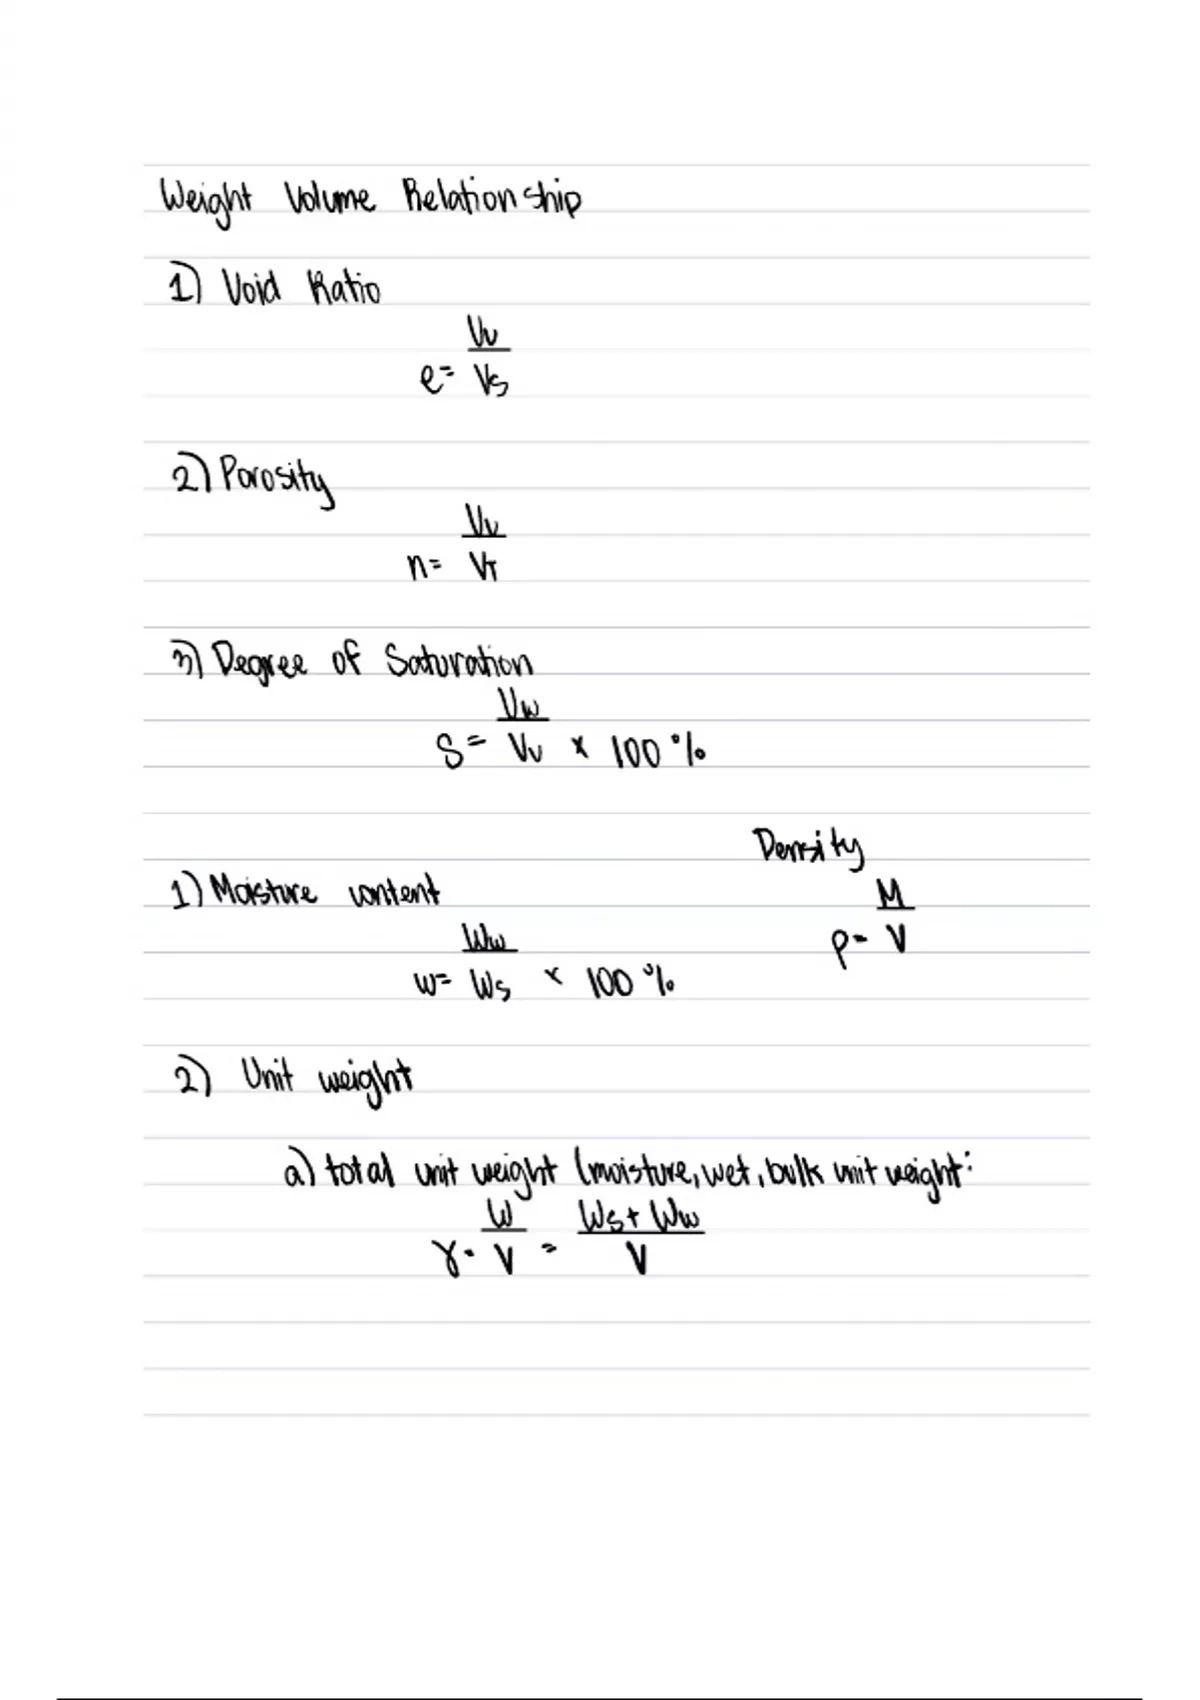 Weight Volume Relationship
1) Void Ratio
e = Vv / Vs
2) Porosity
n = Vv / VT
3) Degree of Saturation
S = Vw / Vv x 100 %
Density
ρ = M / V
1) Moisture content
w = Ww / Ws x 100 %
2) Unit weight
a) total unit weight (moisture, wet, bulk unit weight:
γ = W / V = Ws + Ww / V